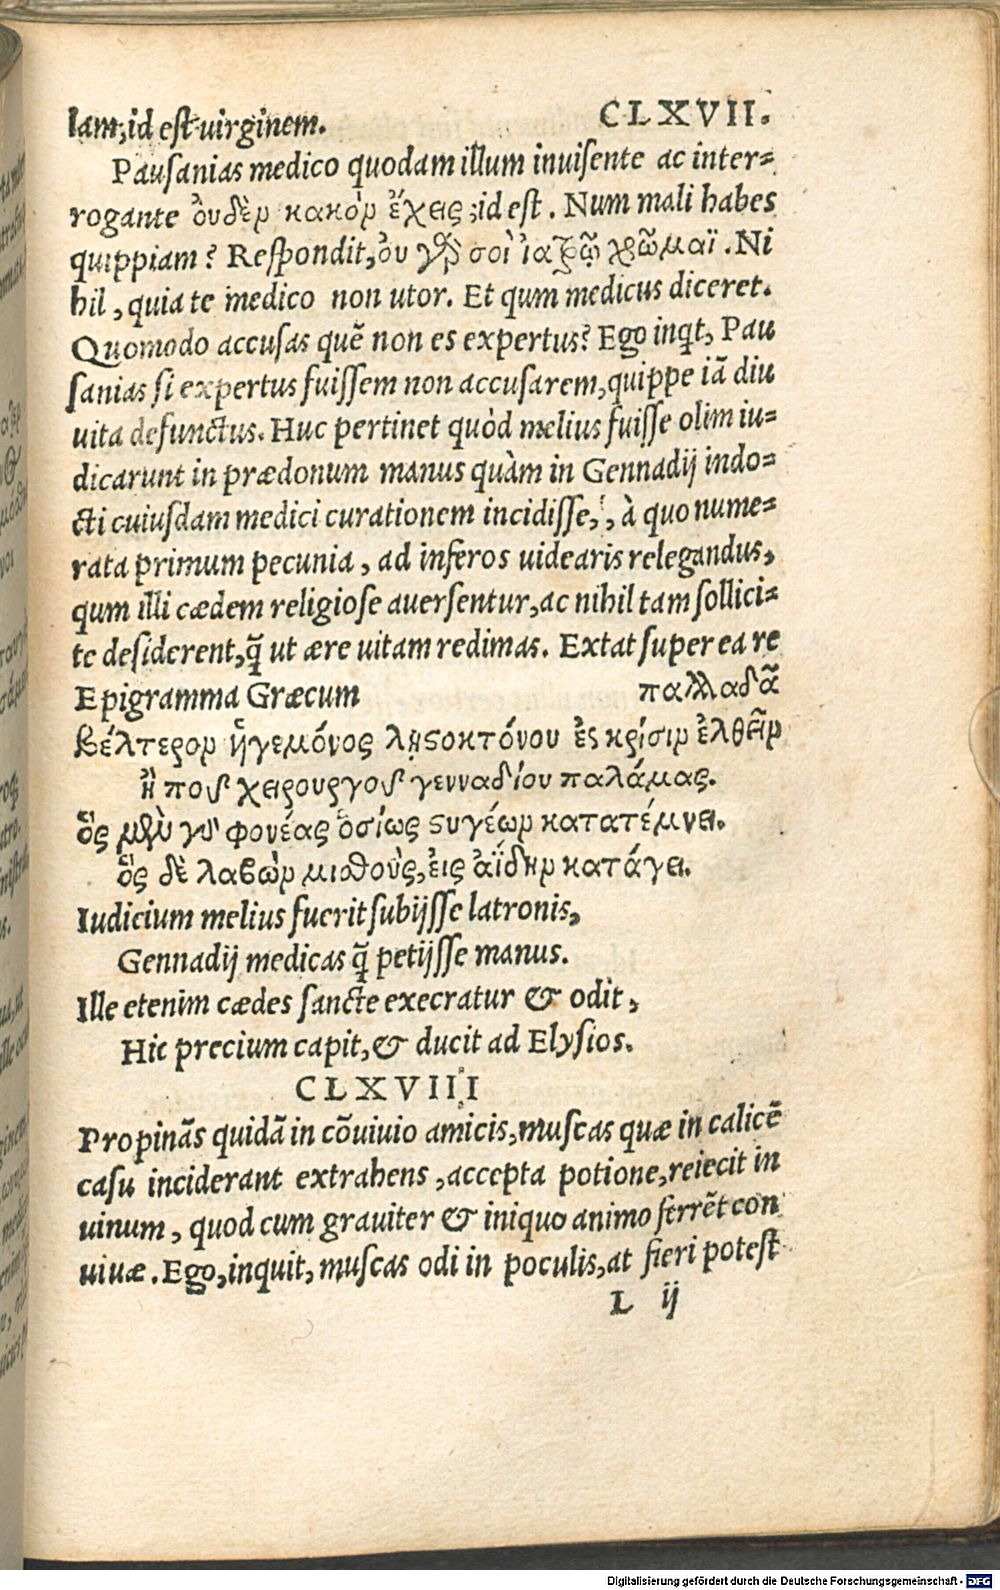 lam,id est uirginem. CLXVII.
Pausanias medico quodam illum inuisente ac inter-
rogante ὀυδὲν κακὸν ἔχεις;id est. Num mali habes
quippiam? Respondit,ὀυ γὰρ σοὶ ἰατρῷ χρῶμαϊ. Ni
hil, quia te medico non utor. Et qum medicus diceret.
Quomodo accusas quē non es expertus? Ego inqt, Pau
sanias si expertus fuissem non accusarem,quippe iā diu
uita defunctus. Huc pertinet quòd melius fuisse olim iu-
dicarunt in prædonum manus quàm in Gennadij indo-
cti cuiusdam medici curationem incidisse, à quo nume-
rata primum pecunia, ad inferos uidearis relegandus,
qum illi cædem religiose auersentur,ac nihil tam sollici-
te desiderent,q̄ ut ære uitam redimas. Extat super ea re
Epigramma Græcum παλλαδᾶ
βέλτερον ἡγεμόνος λῃστοκτόνου ἐς κρίσιν ἐλθεῖν
ἢ τοῦ χειρουργοῦ γενναδίου παλάμας.
ὃς μὲν γὰρ φονέας ὁσίως στυγέων κατατέμνει.
ὃς δὲ λαβὼν μισθοὺς,ἐις ἀΐδην κατάγει.
Iudicium melius fuerit subijsse latronis,
Gennadij medicas q̄ petijsse manus.
Ille etenim cædes sancte execratur & odit,
Hic precium capit,& ducit ad Elysios.
CLXVIII
Propinās quidā in cōuiuio amicis,muscas quæ in calicē
casu inciderant extrahens, accepta potione,reiecit in
uinum, quod cum grauiter & iniquo animo ferrēt con
uiuæ. Ego,inquit, muscas odi in poculis,at fieri potest
L ij
Digitalisierung gefördert durch die Deutsche Forschungsgemeinschaft - DFG